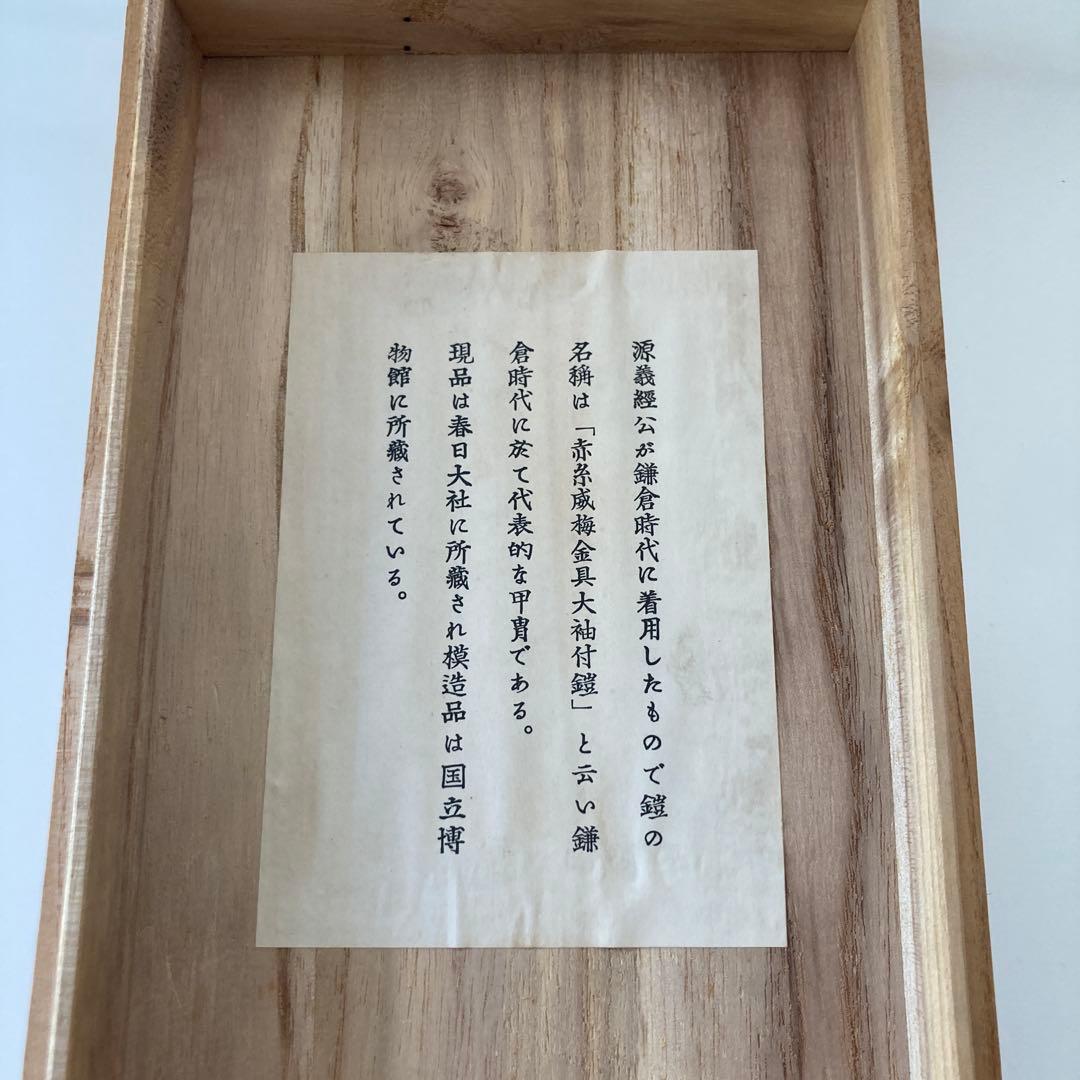 源義經公が鎌倉時代に着用したもので鎧の
名稱は「赤糸威梅金具大袖付鎧」と云い鎌
倉時代に於て代表的な甲冑である。
現品は春日大社に所藏され模造品は国立博
物館に所藏されている。